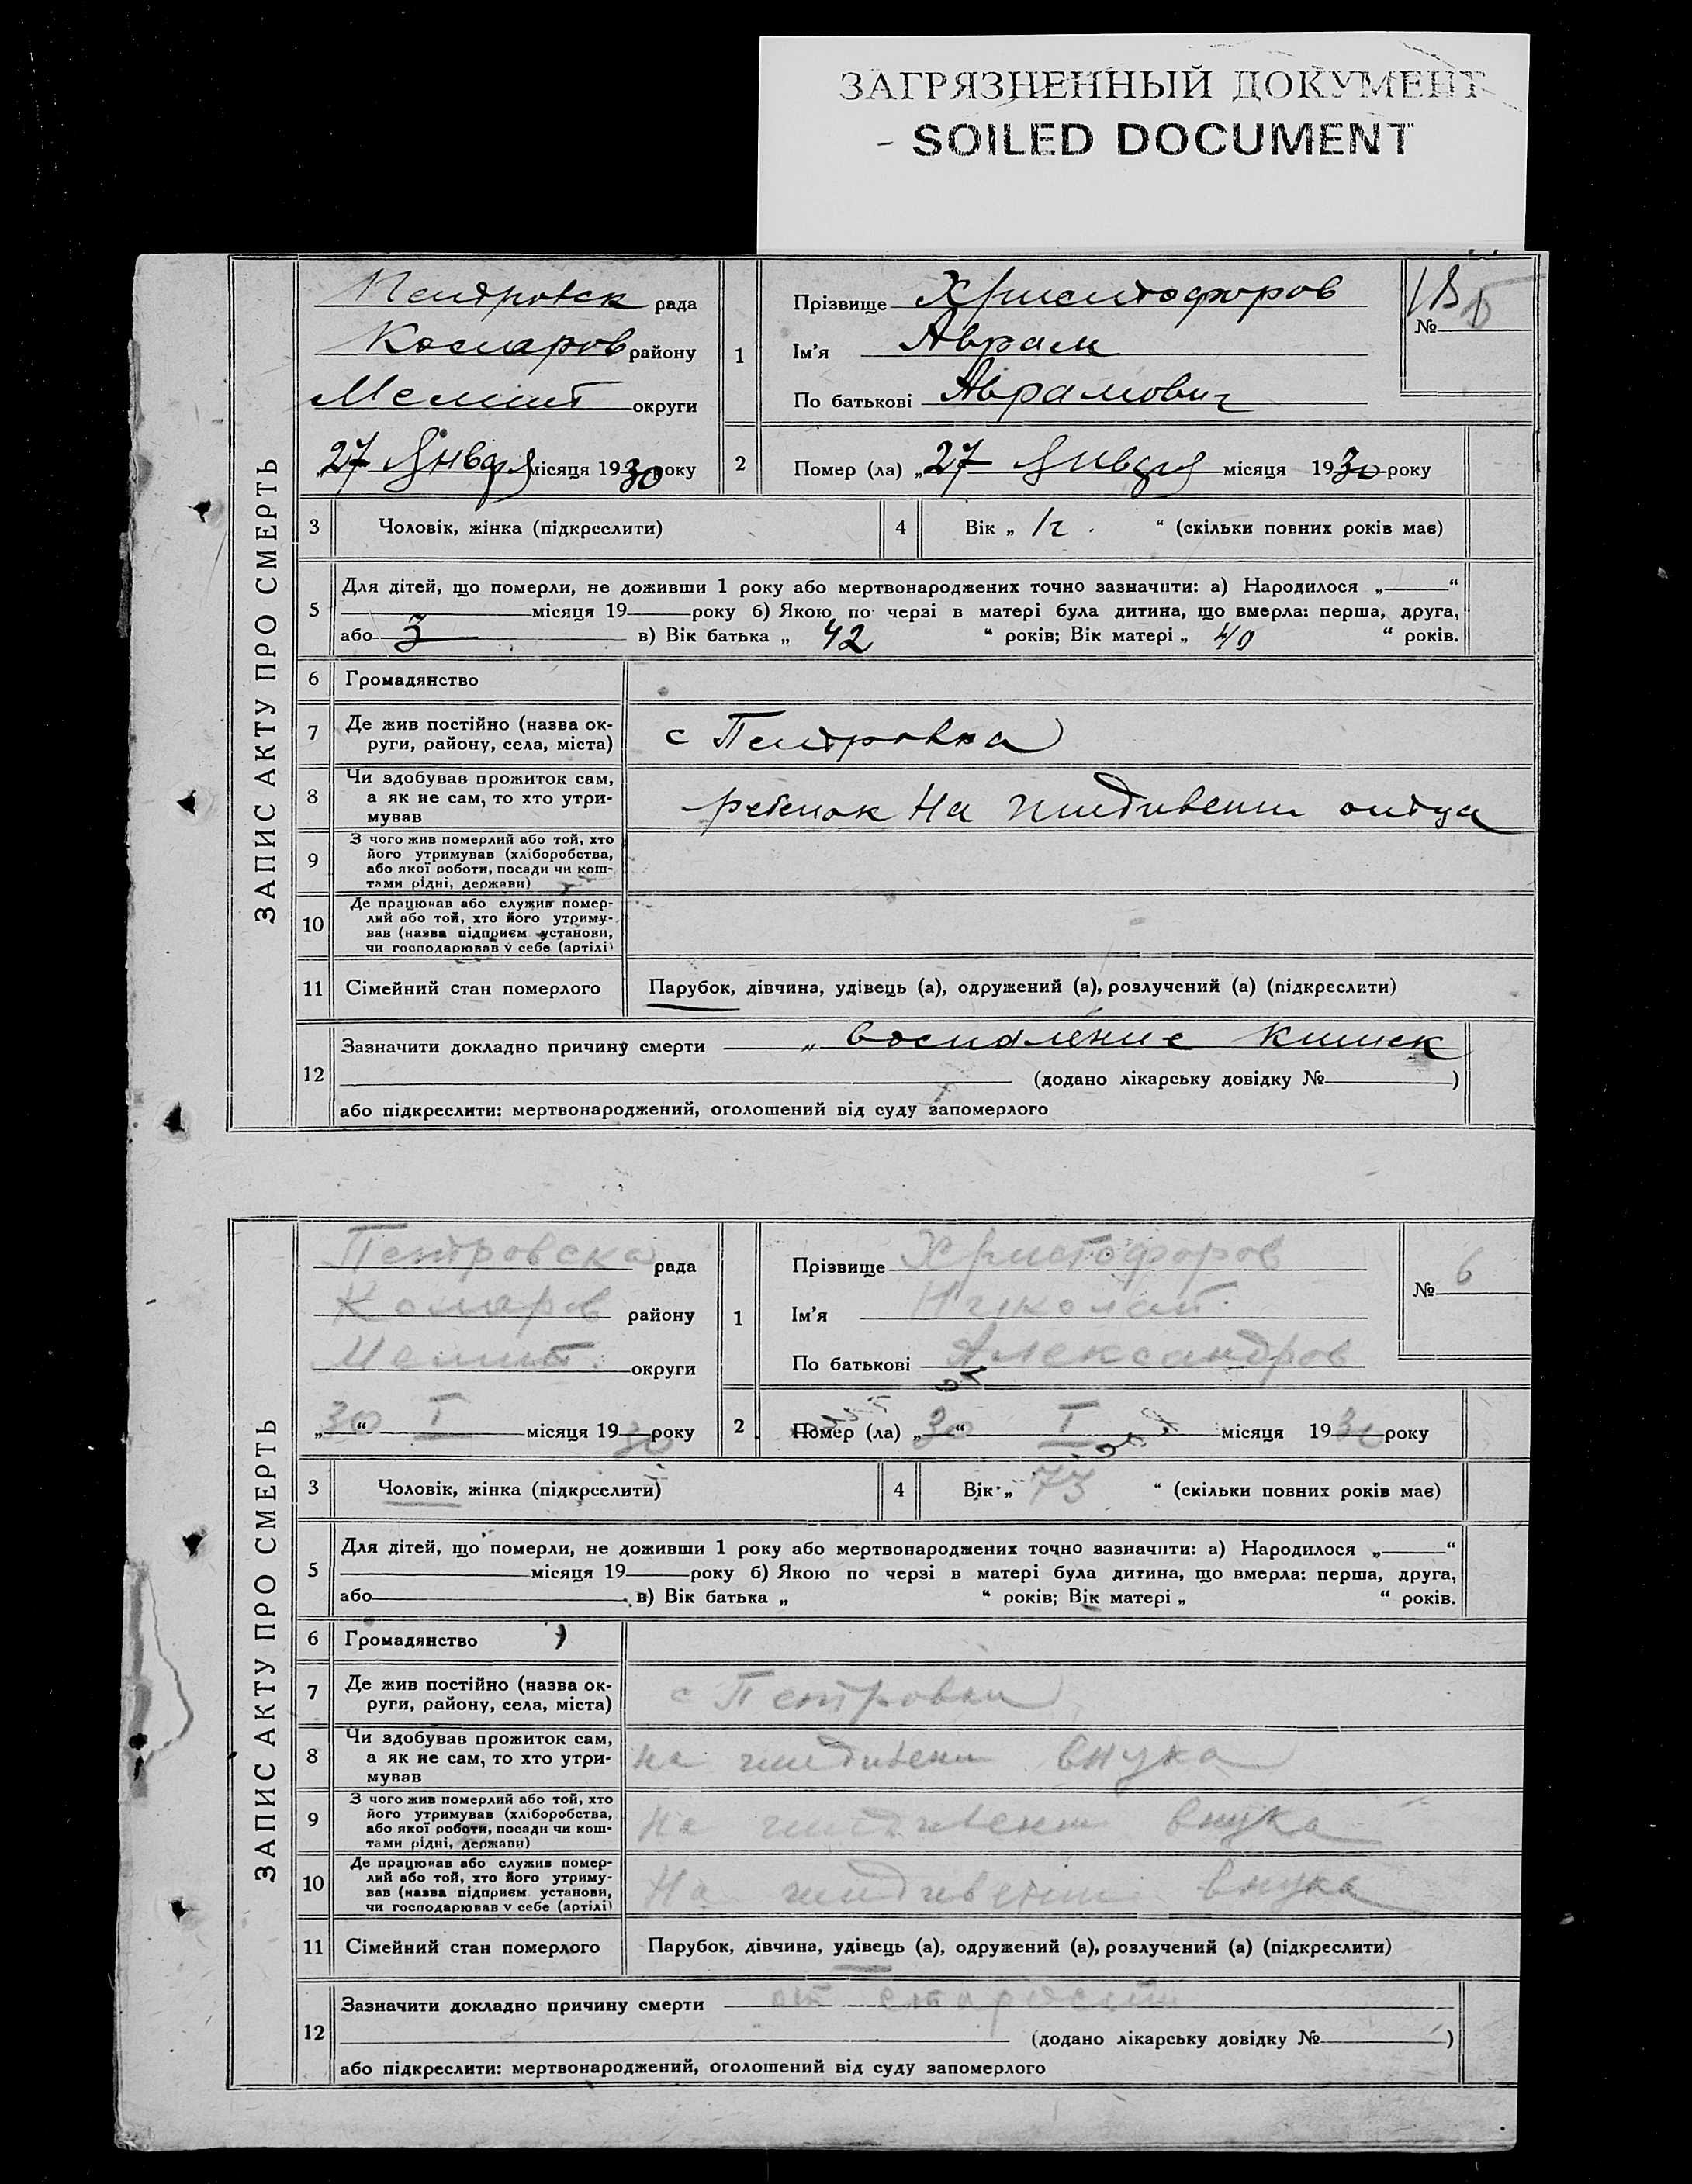 ЗАГРЯЗНЕННЫЙ ДОКУМЕНТ
- SOILED DOCUMENT
ЗАПИС АКТУ ПРО СМЕРТЬ
Петровск рада
Комаров району
Мелит округи
„27 Января місяця 1930 року
1
Прізвище Христофоров
Ім'я Аврам
По батькові Аврамович
№ 5
2
Помер (ла) „27 Января місяця 1930 року
3 Чоловік, жінка (підкреслити)
4 Вік „ 1 г. “ (скільки повних років має)
5
Для дітей, що померли, не доживши 1 року або мертвонароджених точно зазначити: а) Народилося „ “
місяця 19 року б) Якою по черзі в матері була дитина, що вмерла: перша, друга,
або 3 в) Вік батька „ 42 “ років; Вік матері „ 40 “ років.
6 Громадянство
7 Де жив постійно (назва ок-
руги, району, села, міста)
с Петровка
8 Чи здобував прожиток сам,
а як не сам, то хто утри-
мував
ребенок На иждивении отца
9 З чого жив померлий або той, хто
його утримував (хліборобства,
або якої роботи, посади чи кош-
тами рідні, держави)
10 Де працював або служив помер-
лий або той, хто його утриму-
вав (назва підприєм установи,
чи господарював у себе (артілі)
11 Сімейний стан померлого
Парубок, дівчина, удівець (а), одружений (а), розлучений (а) (підкреслити)
12
Зазначити докладно причину смерти „ воспаление кишек
(додано лікарську довідку № )
або підкреслити: мертвонароджений, оголошений від суду запомерлого
ЗАПИС АКТУ ПРО СМЕРТЬ
Петровска рада
Комаров району
Мелит. округи
„30“ I місяця 1930 року
1
Прізвище Христофоров
Ім'я Николай
По батькові Александров
№ 6
2
Помер (ла) „30“ I місяця 1930 року
3 Чоловік, жінка (підкреслити)
4 Вік „ 73 “ (скільки повних років має)
5
Для дітей, що померли, не доживши 1 року або мертвонароджених точно зазначити: а) Народилося „ “
місяця 19 року б) Якою по черзі в матері була дитина, що вмерла: перша, друга,
або в) Вік батька „ “ років; Вік матері „ “ років.
6 Громадянство
7 Де жив постійно (назва ок-
руги, району, села, міста)
с Петровки
8 Чи здобував прожиток сам,
а як не сам, то хто утри-
мував
на иждивени внука
9 З чого жив померлий або той, хто
його утримував (хліборобства,
або якої роботи, посади чи кош-
тами рідні, держави)
На иждивени внука
10 Де працював або служив помер-
лий або той, хто його утриму-
вав (назва підприєм установи,
чи господарював у себе (артілі)
На иждивении внука
11 Сімейний стан померлого
Парубок, дівчина, удівець (а), одружений (а), розлучений (а) (підкреслити)
12
Зазначити докладно причину смерти от старости
(додано лікарську довідку № )
або підкреслити: мертвонароджений, оголошений від суду запомерлого